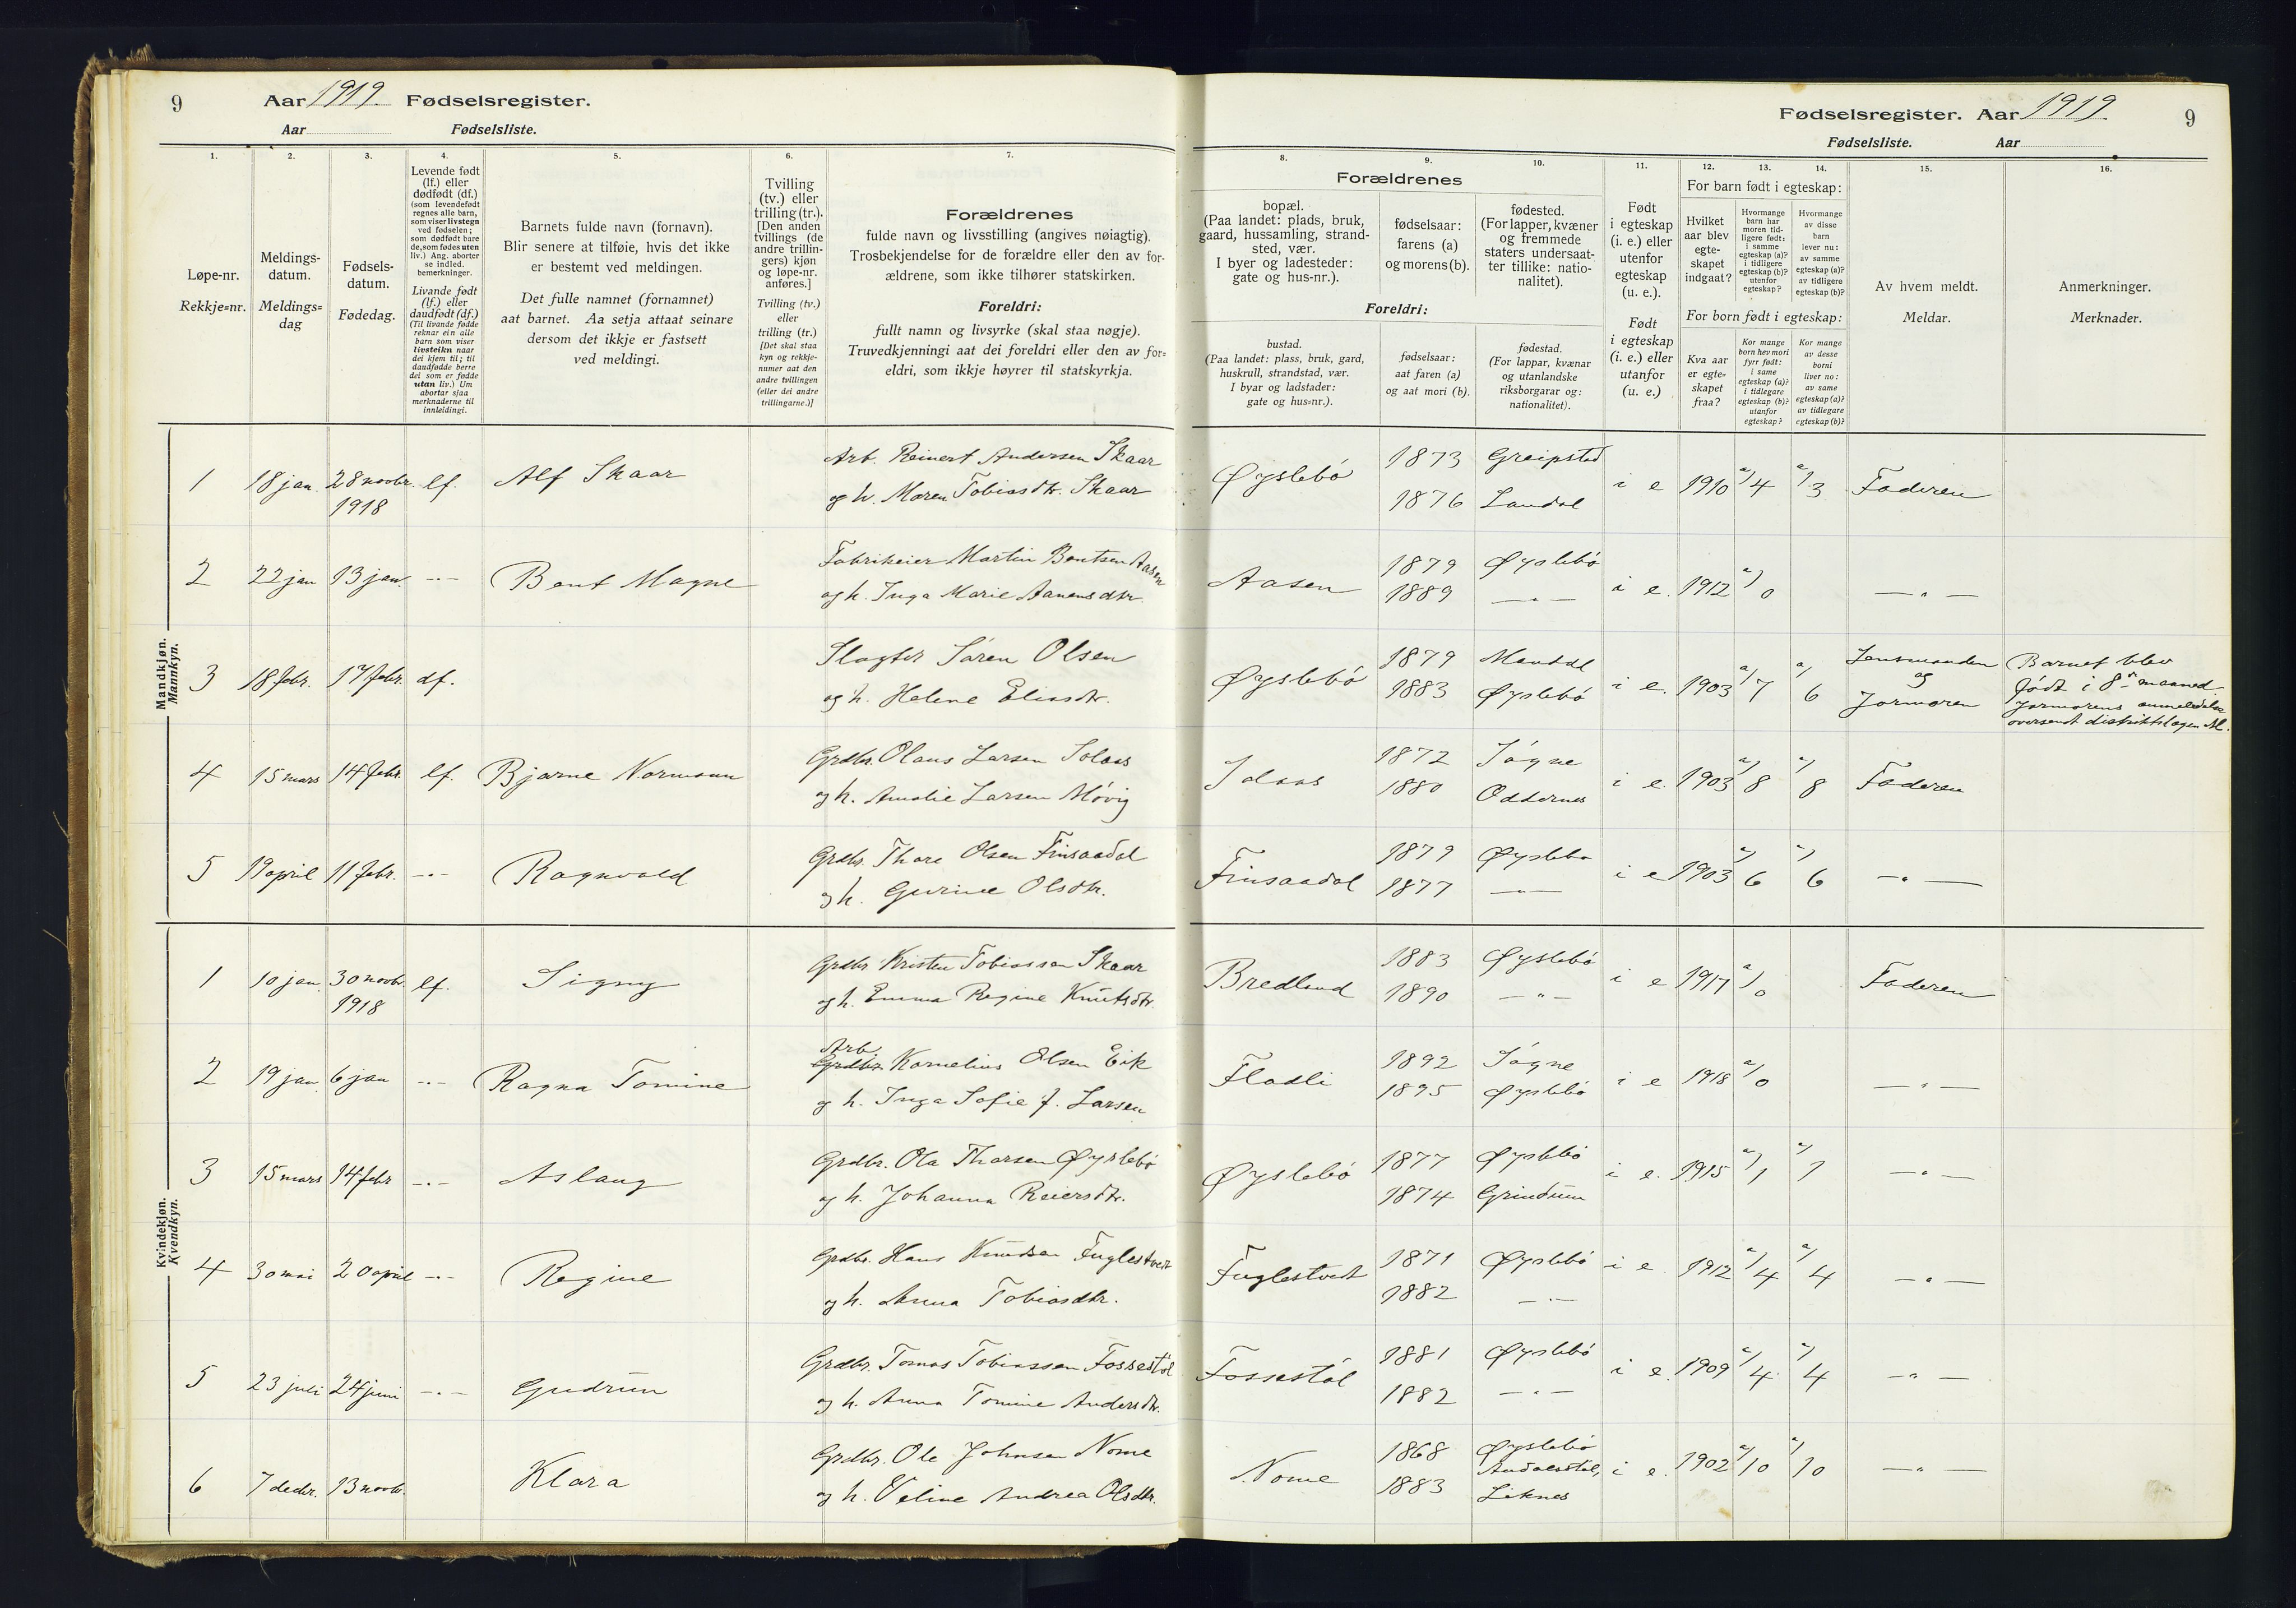 9
Aar 1919. Fødselsregister.
Aar Fødselsliste.
Fødselsregister. Aar 1919.
9
Fødselsliste. Aar
1.
Løpe-nr.
Rekkje=nr.
2.
Meldings-
datum.
Meldings=
dag
3.
Fødsels-
datum.
Fødedag.
4.
Levende født
(lf.) eller
dødfødt (df.)
(som levendefødt
regnes alle barn,
som viser livstegn
ved fødselen;
som dødfødt bare
de, som fødes uten
liv.) Ang. aborter
se indled.
bemerkninger.
Livande født
(lf.) eller
daudfødt (df.)
(Til livande fødde
reknar ein alle
barn som viser
livsteikn naar
dei kjem til; til
daudfødde berre
dei som er fødde
utan liv.) Um
abortar sjaa
merknaderne til
innleidingi.
5.
Barnets fulde navn (fornavn).
Blir senere at tilføie, hvis det ikke
er bestemt ved meldingen.
Det fulle namnet (fornamnet)
aat barnet. Aa setja attaat seinare
dersom det ikkje er fastsett
ved meldingi.
6.
Tvilling
(tv.) eller
trilling (tr.).
[Den anden
tvillings (de
andre trillin-
gers) kjøn
og løpe-nr.
anføres.]
Tvilling (tv.)
eller
trilling (tr.)
[Det skal staa
kyn og rekkje-
numer aat den
andre tvillingen
(eller dei andre
trillingarne.)]
7.
Forældrenes
fulde navn og livsstilling (angives nøiagtig).
Trosbekjendelse for de forældre eller den av for-
ældrene, som ikke tilhører statskirken.
Foreldri:
fullt namn og livsyrke (skal staa nøgje).
Truvedkjenningi aat dei foreldri eller den av for=
eldri, som ikkje høyrer til statskyrkja.
Forældrenes
8.
bopæl.
(Paa landet: plads, bruk,
gaard, hussamling, strand-
sted, vær.
I byer og ladesteder:
gate og hus-nr.).
9.
fødselsaar:
farens (a)
og morens (b).
10.
fødested.
(For lapper, kvæner
og fremmede
staters undersaat-
ter tillike: natio-
nalitet).
Foreldri:
bustad.
(Paa landet: plass, bruk, gard,
huskrull, strandstad, vær.
I byar og ladstader:
gate og hus=nr.).
fødselsaar:
aat faren (a)
og aat mori (b).
fødestad.
(For lappar, kvænar
og utanlandske
riksborgarar og:
nationalitet).
11.
Født
i egteskap
(i. e.) eller
utenfor
egteskap
(u. e.).
Født
i egteskap
(i. e.) eller
utanfor
(u. e.)
12. 13. 14.
For barn født i egteskap:
Hvilket
aar blev
egte-
skapet
indgaat?
Hvormange
barn har
moren tid-
ligere født:
i samme
egteskap (a)?
i tidligere
egteskap (b)?
utenfor
egteskap?
Hvormange
av disse
barn
lever nu:
av samme
egteskap (a)?
av tidligere
egteskap (b)?
For born født i egteskap:
Kva aar
er egte=
skapet
fraa?
Kor mange
born hev mori
fyrr født:
i same
egteskap (a)?
i tidlegare
egteskap (b)?
utanfor
egteskap?
Kor mange
av desse
borni
liver no:
av same
egteskap (a)?
av tidlegare
egteskap (b)?
15.
Av hvem meldt.
Meldar.
16.
Anmerkninger.
Merknader.
Mandkjøn.
Mannkyn.
1 18 jan. 28 novbr. 1918 lf. Alf Skaar
Arb. Reinert Andersen Skaar
og h. Maren Tobiasdtr. Skaar
Øyslebö 1873 Greipstad i e 1910 a/4 a/3 Faderen
1876 Laudal
2 22 jan 13 jan. -"- Bent Magne
Fabrikeier Martin Bentsen Aasen
og h. Inga Marie Aanensdtr.
Aasen 1879 Øyslebö i e. 1912 a/0 -"-
1889 -"-
3 18 febr. 17 febr. df.
Slagter Sören Olsen
og h. Helene Eliasdtr.
Øyslebö 1879 Mandal i e. 1903 a/7 a/6 Lensmanden og Jormoren
1883 Øyslebö
Barnet blev
født i 8de maaned
Jormorens anmeldelse
oversendt distriktslægen
4 15 mars 14 febr. lf. Bjarne Normann
Grdbr. Olaus Larsen Solaas
og h. Amalie Larsen Mövig
Solaas 1872 Sögne i e. 1903 a/8 a/8 Faderen
1880 Oddernes
5 19 april 11 febr. -"- Ragnvald
Grdbr. Thore Olsen Finsaadal
og h. Gurine Olsdtr.
Finsaadal 1879 Øyslebø i e 1903 a/6 a/6 -"-
1877 -"-
Kvindekjøn.
Kvendkyn.
1 10 jan. 30 novbr. 1918 lf. Signy
Grdbr Kristen Tobiassen Skaar
og h. Emma Regine Knutsdtr.
Bredland 1883 Øyslebö i e 1917 a/0 Faderen
1890 -"-
2 19 jan 6 jan -"- Ragna Tomine
Arb.
Grdbr. Kornelius Olsen Eik
og h. Inga Sofie f. Larsen
Fladli 1892 Sögne i e 1918 a/0 -"-
1895 Øyslebö
3 15 mars 14 febr -"- Aslaug
Grdbr. Ola Tharsen Øyslebö
og h. Johanna Reiersdtr.
Øyslebö 1877 Øyslebö i e. 1915 a/1 a/1 -"-
1874 Grindum
4 30 mai 20 april -"- Regine
Grdbr. Hans Knudsen Fuglestvedt
og h. Anna Tobiasdtr.
Fuglestvedt 1871 Øyslebö i e 1912 a/4 a/4 -"-
1882 -"-
5 23 juli 24 juni -"- Gudrun
Grdbr. Tomas Tobiassen Fossestöl
og h. Anna Tomine Andersdtr.
Fossestöl 1881 Øyslebö i e. 1909 a/4 a/4 -"-
1882 -"-
6 7 decbr. 13 novbr. Klara
Grdbr. Ole Johnsen Nome
og h. Veline Andrea Olsdtr.
Nome 1868 Øyslebö i e. 1902 a/10 a/10 -"-
1883 Liknes